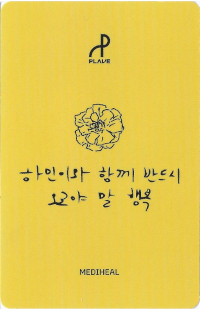 PLAVE
하민이와 함께 반드시
오고야 말 행복
MEDIHEAL